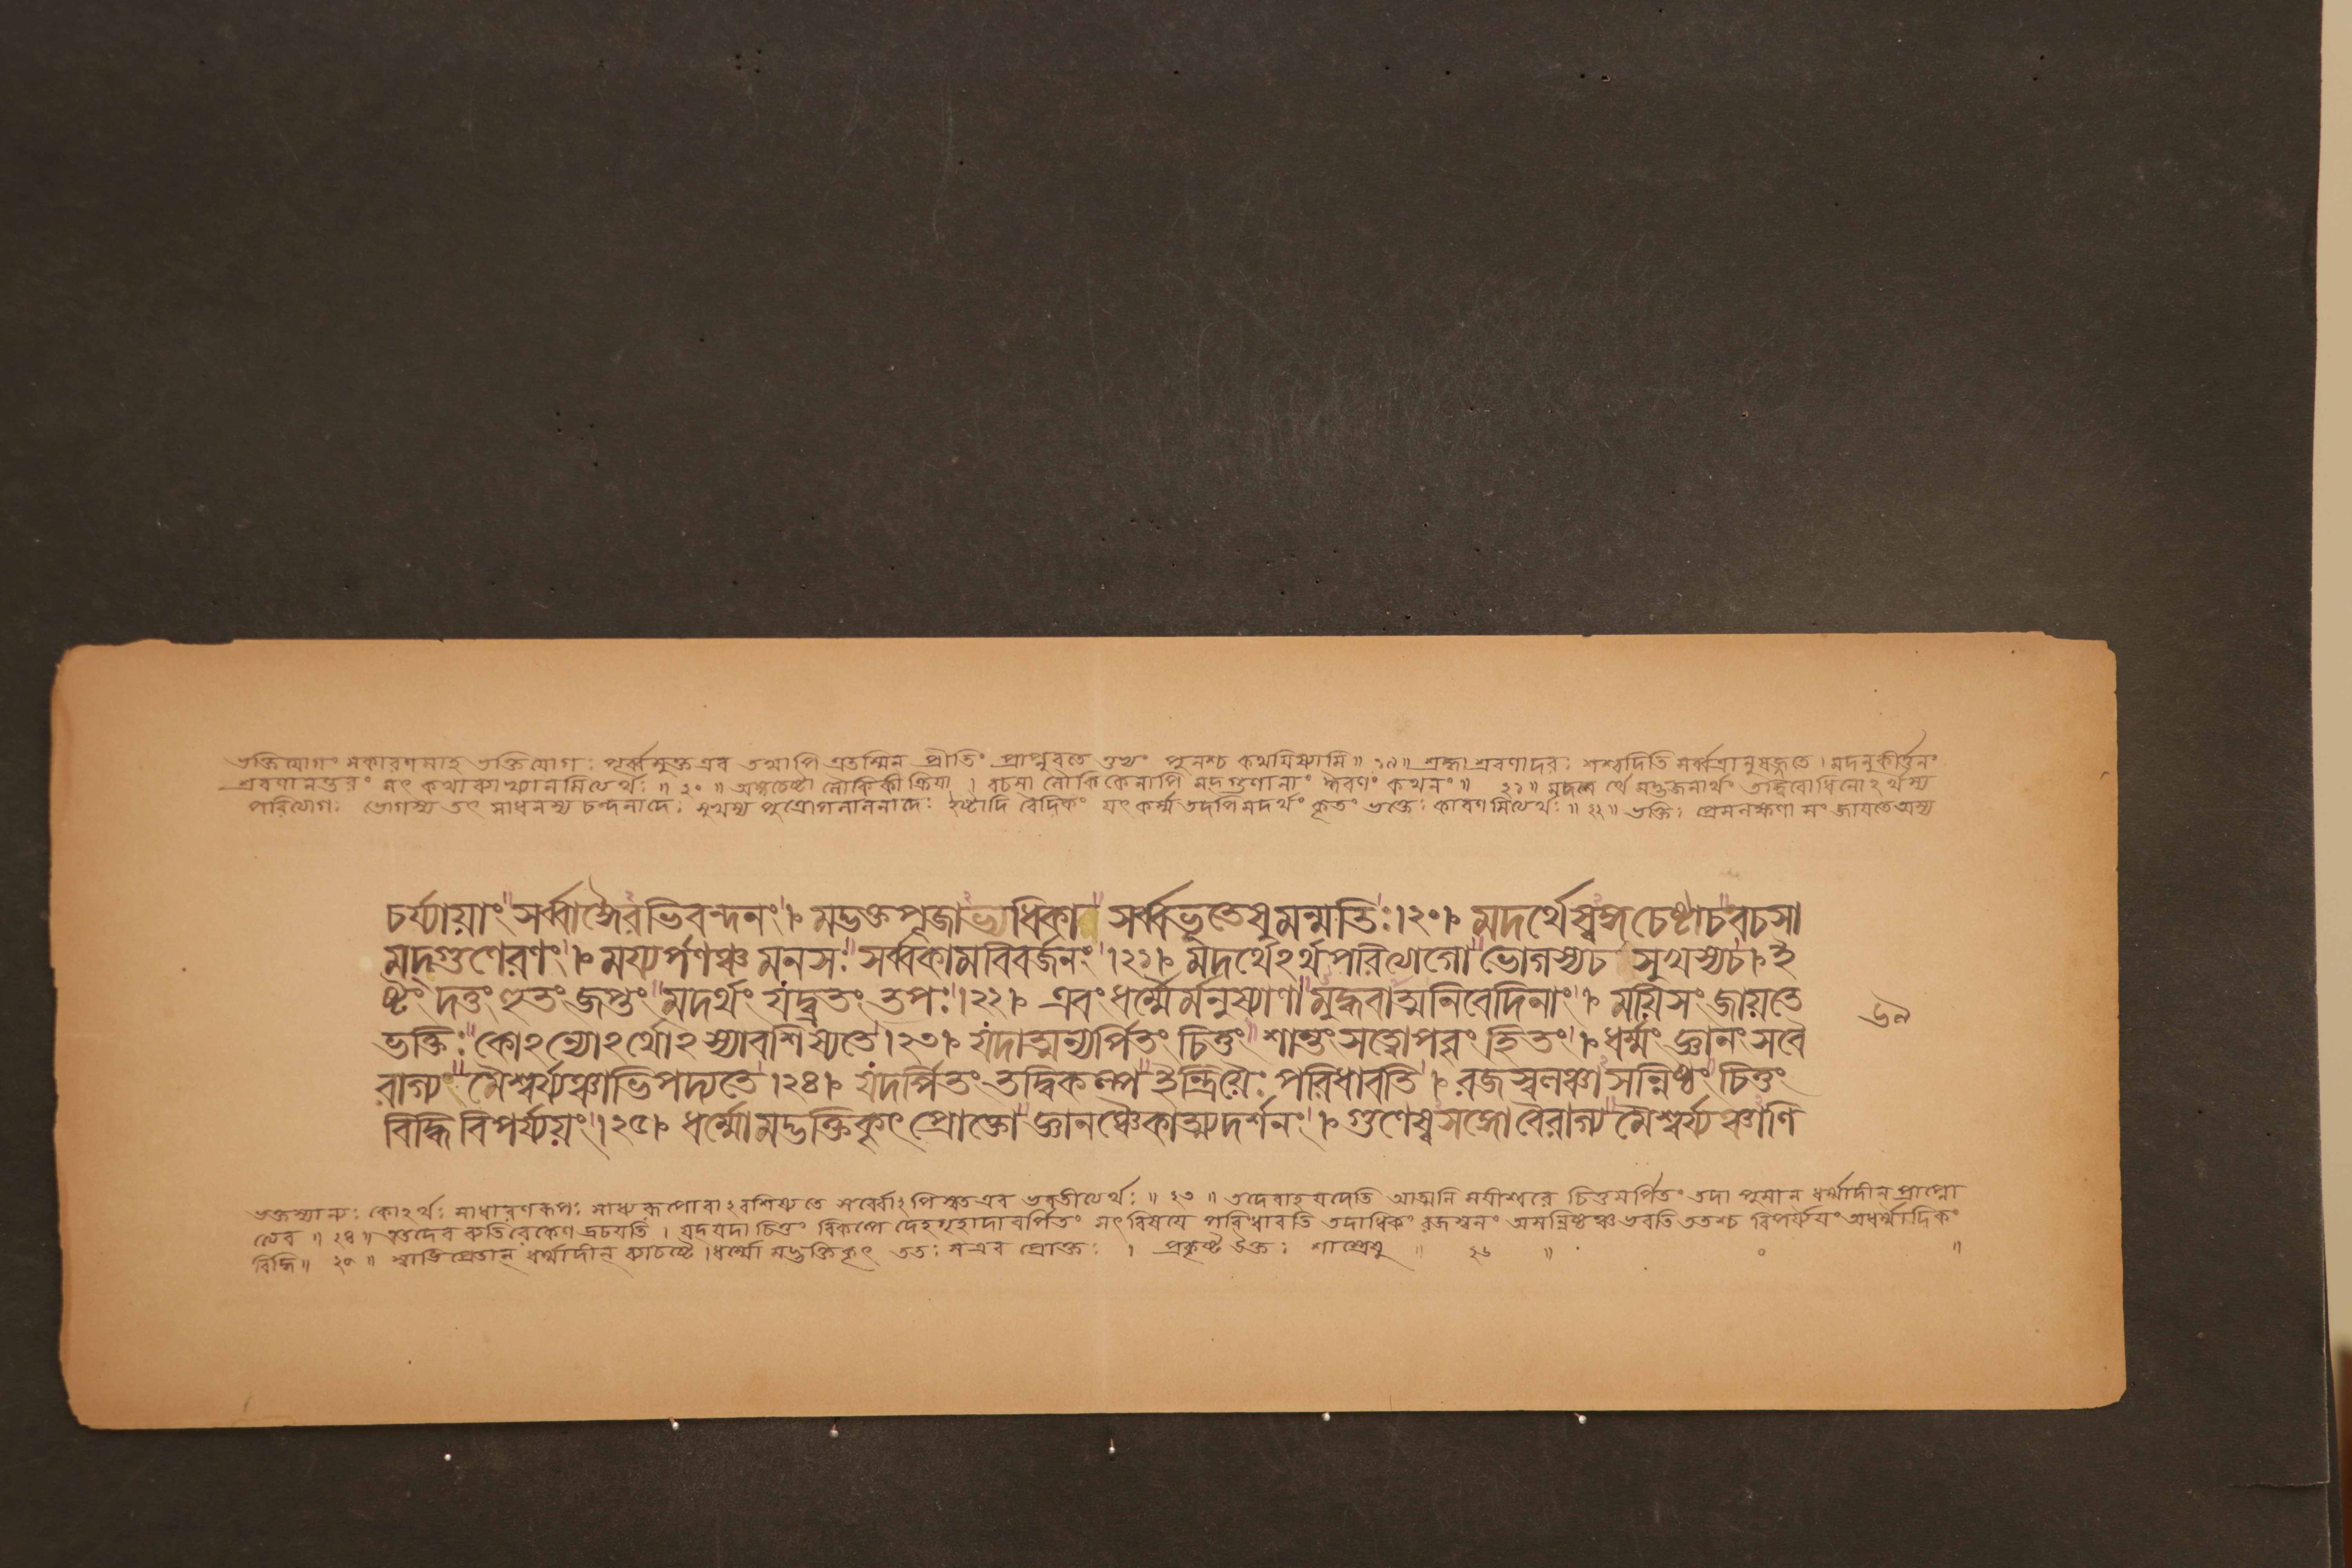 ভক্তিযোগং সকারণমাহ ভক্তিযোগঃ পূর্ব্বমুক্ত এব তথাপি এতস্মিন প্রীতিং প্রাপ্নুবতে তুভ্যং পুনশ্চ কথয়িষ্যামি॥ ১৯॥ শ্রদ্ধা শ্রবণাদরঃ শশ্বদিতি সর্ব্বত্রানুষজ্জতে। মদনুকীর্ত্তনং
শ্রবণানন্তরং মৎ কথাব্যাখ্যানমিত্যর্থঃ॥ ২০॥ অঙ্গচেষ্টা লৌকিকী ক্রিয়া। বচসা লৌকিকেনাপি মদ্গুণানাং ঈরণং কথনং॥ ২১॥ মদর্থে মদ্ভজনার্থং তদ্বিরোধিনোঽর্থস্য
পরিত্যাগঃ ভোগস্য তৎ সাধনস্য চন্দনাদেঃ সুখস্য পুত্রোপলালনাদেঃ ইষ্টাদি বৈদিকং যৎ কর্ম্ম তদপি মদর্থং কৃতং ভক্তেঃ কারণমিত্যর্থঃ॥ ২২॥ ভক্তিঃ প্রেমলক্ষণা সংজায়তে অস্য
চর্য্যায়াং সর্ব্বাঙ্গৈরভিবন্দনং। মদ্ভক্তপূজাভ্যধিকা সর্ব্বভূতেষুমন্মতিঃ।২০। মদর্থেষ্বঙ্গচেষ্টাচবচসা
মদ্গুণেরণং। ময্যর্পণঞ্চ মনসঃ সর্ব্বকামবিবর্জনং।২১। মদর্থেঽর্থপরিত্যাগো ভোগস্যচ সুখস্যচ। ই
ষ্টং দত্তং হুতং জপ্তং মদর্থং যদ্ব্রতং তপঃ।২২। এবং ধর্ম্মৈর্মনুষ্যাণা মুদ্ধবাত্মনিবেদিনাং। ময়িসংজায়তে
ভক্তিঃ কোঽন্যোঽর্থোঽস্যাবশিষ্যতে।২৩। যদাত্মন্যর্পিতং চিত্তং শান্তং সত্ত্বোপবৃংহিতং। ধর্ম্মং জ্ঞানং সবৈ
রাগ্য মৈশ্বর্য্যঞ্চাভিপদ্যতে।২৪। যদর্পিতং তদ্বিকল্পে ইন্দ্রিয়ৈঃ পরিধাবতি। রজস্বলঞ্চা সন্নিষ্ঠং চিত্তং
বিদ্ধি বিপর্য্যয়ং।২৫। ধর্ম্মো মদ্ভক্তিকৃৎ প্রোক্তো জ্ঞানঞ্চৈকাত্ম্যদর্শনং। গুণেষ্বসঙ্গোবৈরাগ্য মৈশ্বর্য্যঞ্চাণি
৬৯
ভক্তস্যান্যঃ কোঽর্থঃ সাধারণরূপঃ সাধ্যরূপোবাঽবশিষ্যতে সর্ব্বোঽপি স্বত এব ভবতীত্যর্থঃ॥ ২৩॥ তদেবাহ যদেতি আত্মনি ময়ীশ্বরে চিত্তমর্পিতং তদা পুমান্ ধর্ম্মাদীন্ প্রাপ্নো
ত্যেব॥ ২৪॥ এতদেব ব্যতিরেকেণ দ্রঢয়তি। যদ্ যদা চিত্তং বিকল্পে দেহগৃহাদাবর্পিতং সৎ বিষয়ে পরিধাবতি তদাধিকং রজস্বলং অসন্নিষ্ঠঞ্চ ভবতি ততশ্চ বিপর্য্যয়ং অধর্ম্মাদিকং
বিদ্ধি॥ ২৫॥ স্বাভিপ্রেতান্ ধর্ম্মাদীন্ ব্যাচষ্টে। ধর্ম্মো মদ্ভক্তিকৃৎ ততঃ স এব প্রোক্তঃ। প্রকৃষ্ট উক্তঃ শাস্ত্রেষু॥ ২৬॥